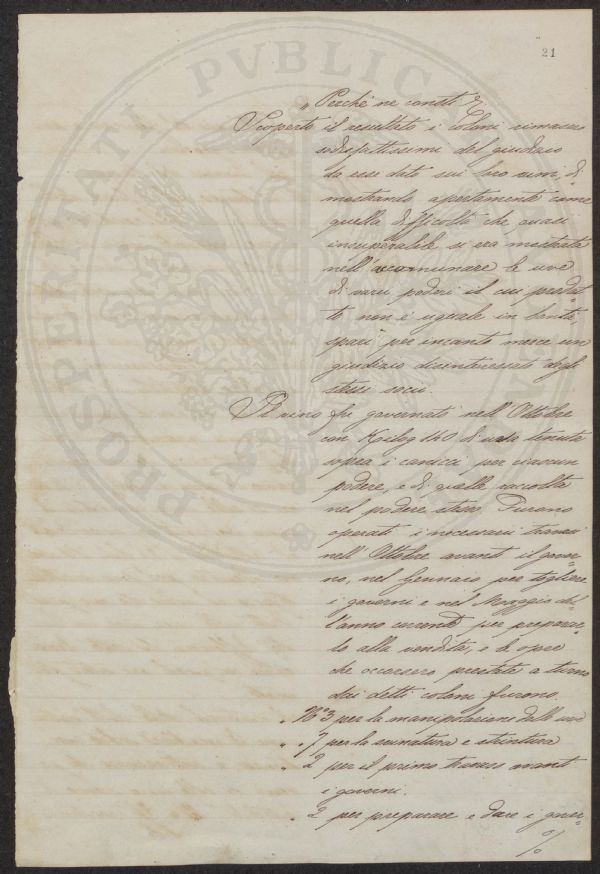 21
„ Perché ne consti &.
Scoperto il resultato i Coloni rimasero
sodisfattissimi del giudizio
da essi dato sui loro vini, di-
mostrando apertamente come
quella difficoltà che quasi
insuperabile si era mostrata
nell'accomunare le uve
di varii poderi il cui prodot-
to non è uguale in bontà,
sparì per incanto merce un
giudizio disinteressato degli
stessi socii.
Il vino fu governato nell'Ottobre
con Kilog 140 di uva tenuta
sopra i canicci per ciascun
podere, e di quella raccolta
nel podere stesso. Furono
operati i necessari tramuti
nell'Ottobre avanti il gover-
no, nel Gennaio per togliere
i governi e nel Maggio del-
l'anno corrente per preparar-
lo alla vendita, e le opere
che occorsero prestate a turno
dai detti coloni furono.
„ N° 3 per la manipolazione delle uve
„ „ 7 per la svinatura e strintura
„ 2 per il primo tramuto avanti
i governi.
„ 2 per preparare e dare i gover-
%
PROSPERITATI PVBLICAE